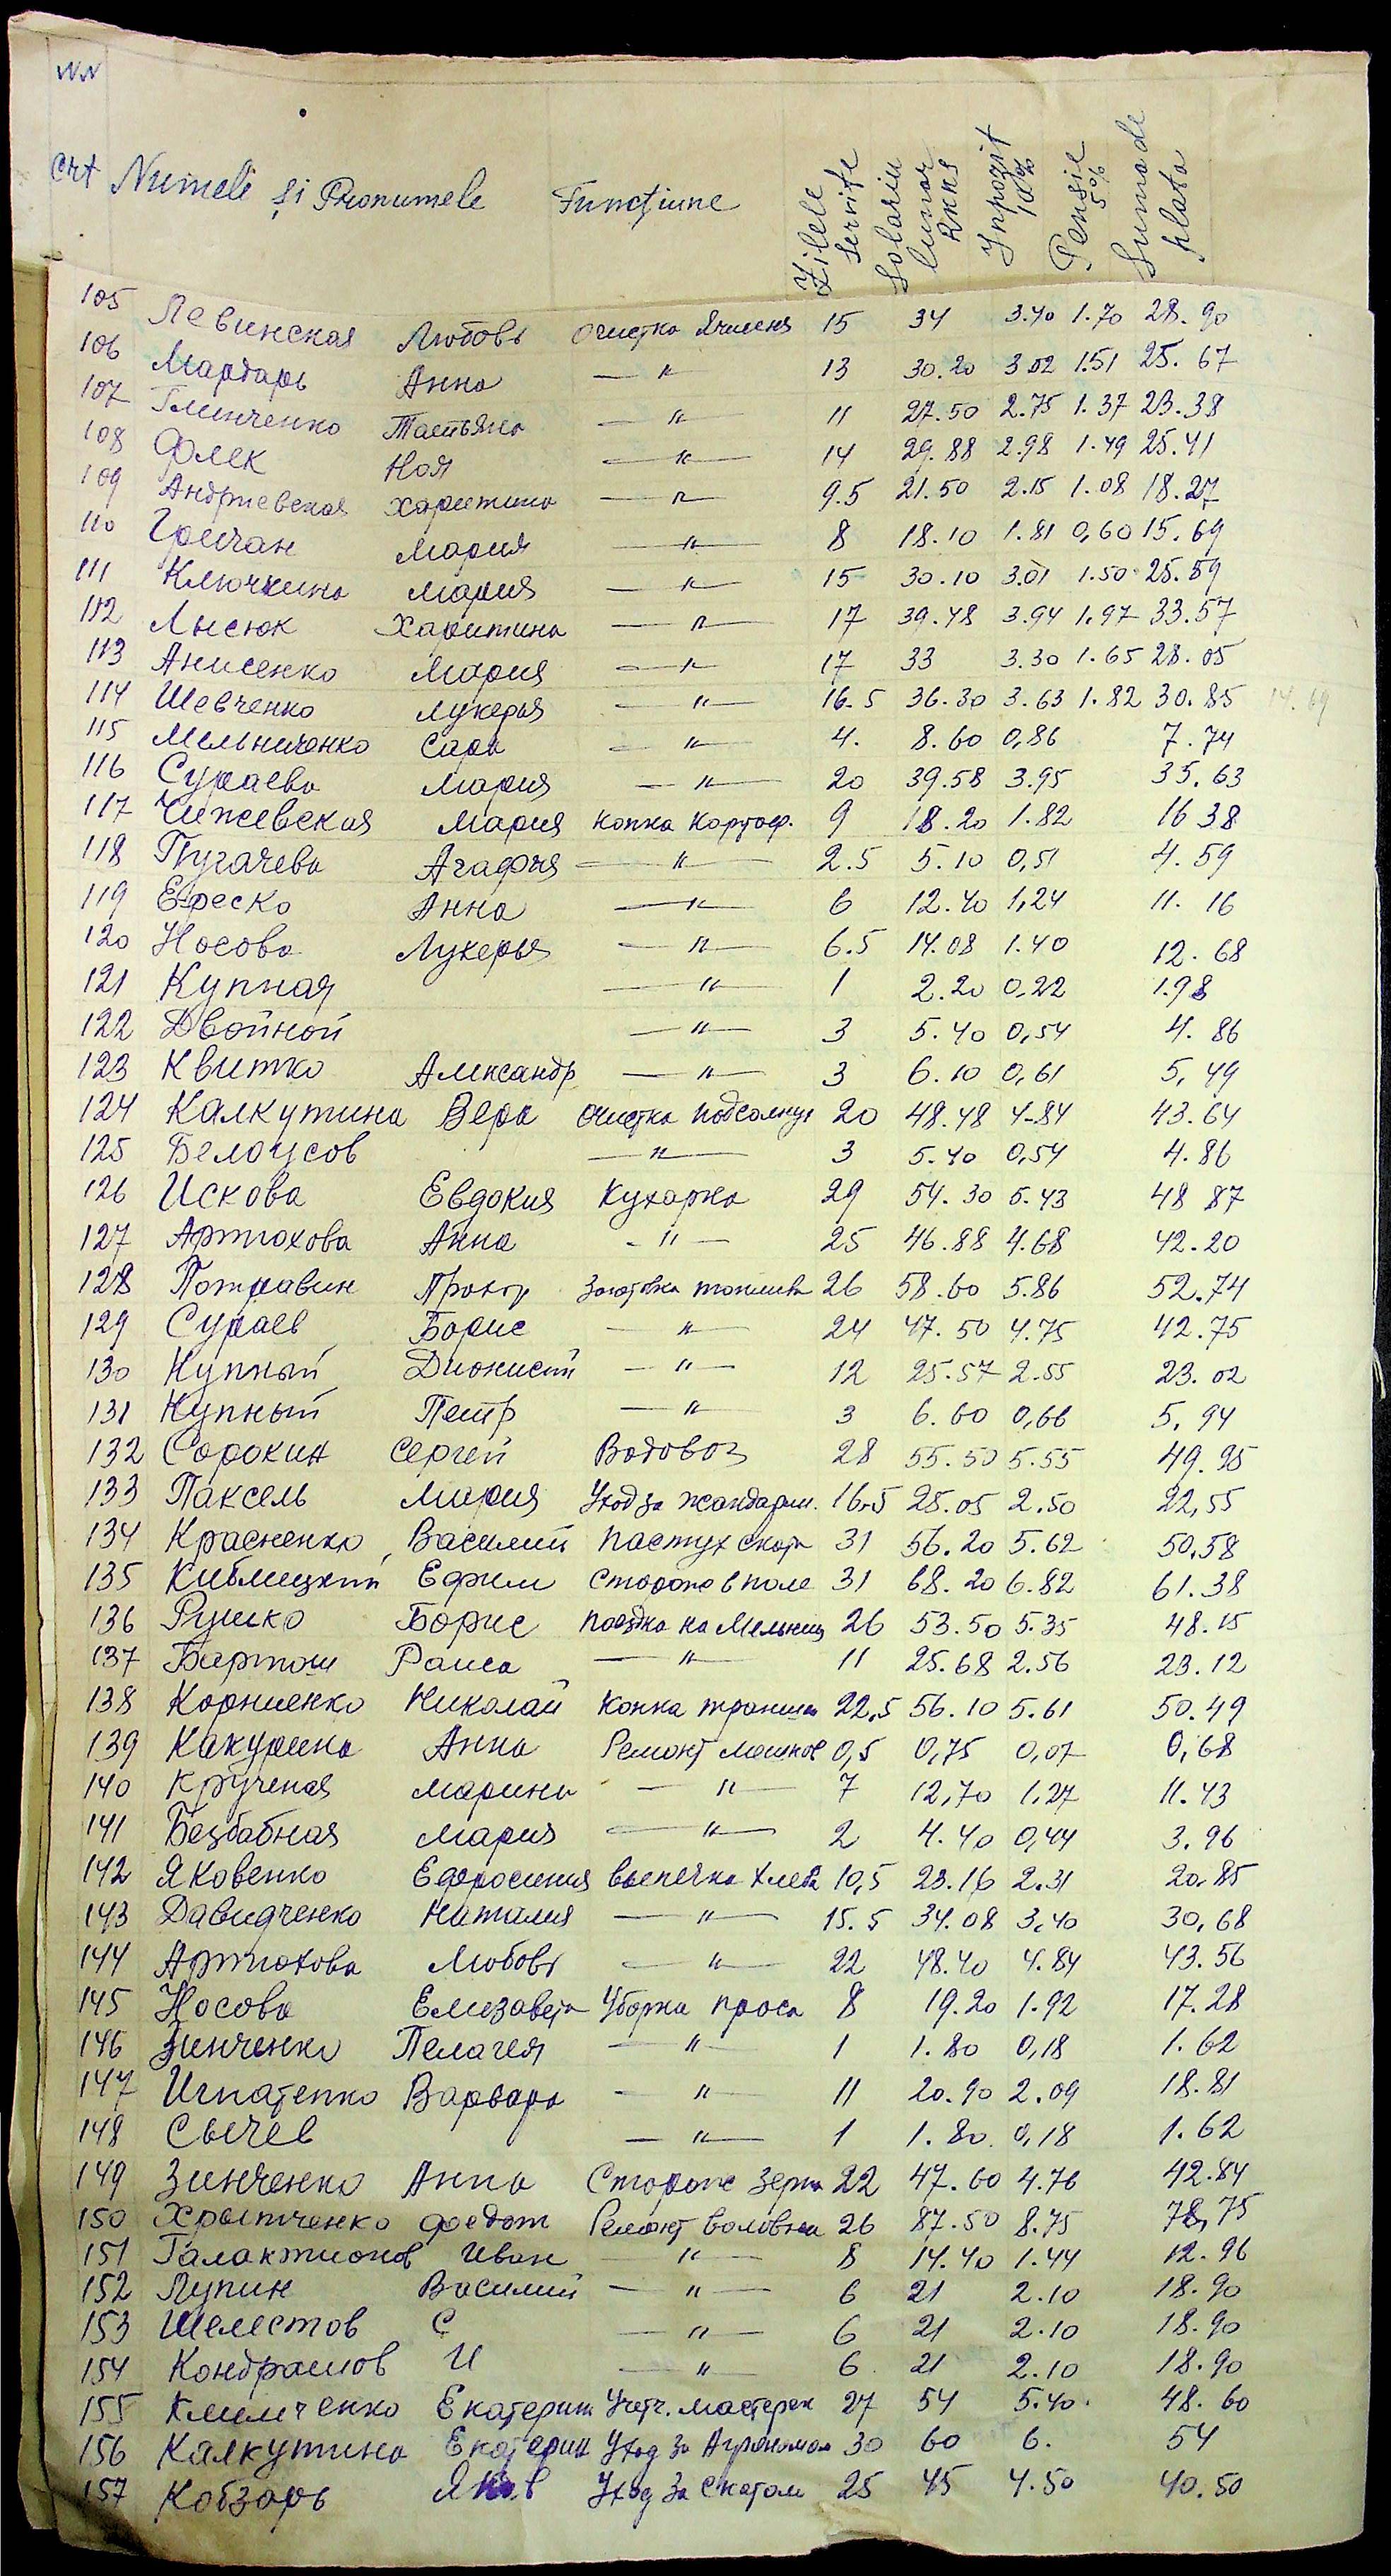 NN
crt Numele și Pronumele Funcțiune Zilele servite Solariu lunar RKKS Inpozit 10% Pensie 5% Suma de plata
105 Левинская Любовь очистка Ячменя 15 34 3.40 1.70 28.90
106 Мардарь Анна —"— 13 30.20 3.02 1.51 25.67
107 Глинченко Татьяна —"— 11 27.50 2.75 1.37 23.38
108 Флек Ноя —"— 14 29.88 2.98 1.49 25.41
109 Андриевская Харитина —"— 9.5 21.50 2.15 1.08 18.27
110 Гричан Мария —"— 8 18.10 1.81 0,60 15.69
111 Ключкина Мария —"— 15 30.10 3.01 1.50 25.59
112 Лысюк Харитина —"— 17 39.48 3.94 1.97 33.57
113 Анисенко Мария —"— 17 33 3.30 1.65 28.05
114 Шевченко Лукерья —"— 16.5 36.30 3.63 1.82 30.85
115 Мельниченко Сара —"— 4. 8.60 0,86 7.74
116 Сураева Мария —"— 20 39.58 3.95 35.63
117 Чижевская Мария копка картоф. 9 18.20 1.82 16 38
118 Пугачева Агафия —"— 2.5 5.10 0,51 4.59
119 Ереско Анна —"— 6 12.40 1,24 11.16
120 Носова Лукерья —"— 6.5 14.08 1.40 12.68
121 Купная —"— 1 2.20 0.22 1.98
122 Двойной —"— 3 5.40 0,54 4.86
123 Квитко Александр —"— 3 6.10 0,61 5,49
124 Калкутина Вера очистка подсолнух 20 48.48 4-84 43.64
125 Белоусов —"— 3 5.40 0,54 4.86
126 Искова Евдокия Кухарка 29 54.30 5.43 48 87
127 Артюхова Анна -"— 25 46.88 4.68 42.20
128 Потравин Прокоп Заготовка топлива 26 58.60 5.86 52.74
129 Сураев Борис —"— 24 47.50 4.75 42.75
130 Купный Дионисий —"— 12 25.57 2.55 23.02
131 Купный Петр —"— 3 6.60 0,66 5,94
132 Сорокин Сергей Водовоз 28 55.50 5.55 49.95
133 Паксель Мария Уход за жандарм. 16.5 25.05 2.50 22,55
134 Красненко Василий пастух скота 31 56.20 5.62 50,58
135 Киблицкий Ефим Сторож в поле 31 68.20 6.82 61.38
136 Рушко Борис поездка на Мельниц 26 53.50 5.35 48.15
137 Бартош Раиса —"— 11 25.68 2.56 23.12
138 Корниенко Николай Копка траншеи 22,5 56.10 5.61 50.49
139 Какурина Анна Ремонт мешков 0,5 0,75 0,07 0,68
140 Крученая Марина —"— 7 12,70 1,27 11.43
141 Безбабная Мария —"— 2 4.40 0,44 3.96
142 Яковенко Ефросиния выпечка хлеба 10,5 23.16 2.31 20.85
143 Давидченко Наталия —"— 15.5 34.08 3,40 30,68
144 Артюхова Любовь —"— 22 48.40 4.84 43.56
145 Носова Елизавета Уборка проса 8 19.20 1.92 17.28
146 Зинченко Пелагея —"— 1 1.80 0,18 1.62
147 Игнатенко Варвара —"— 11 20.90 2.09 18.81
148 Сычев —"— 1 1.80 0,18 1.62
149 Зинченко Анна Сторож зерна 22 47.60 4.76 42.84
150 Хрытченко Федот Ремонт воловни 26 87.50 8.75 78,75
151 Галактионов Иван —"— 8 14.40 1.44 12.96
152 Лупин Василий —"— 6 21 2.10 18.90
153 Шелестов С —"— 6 21 2.10 18.90
154 Кондрашов И —"— 6 21 2.10 18.90
155 Климченко Екатерин Учетч. мастерск 27 54 5.40 48.60
156 Калкутина Екатерин Уход за Агрономом 30 60 6. 54
157 Кобзарь Яков Уход за скотом 25 45 4.50 40.50